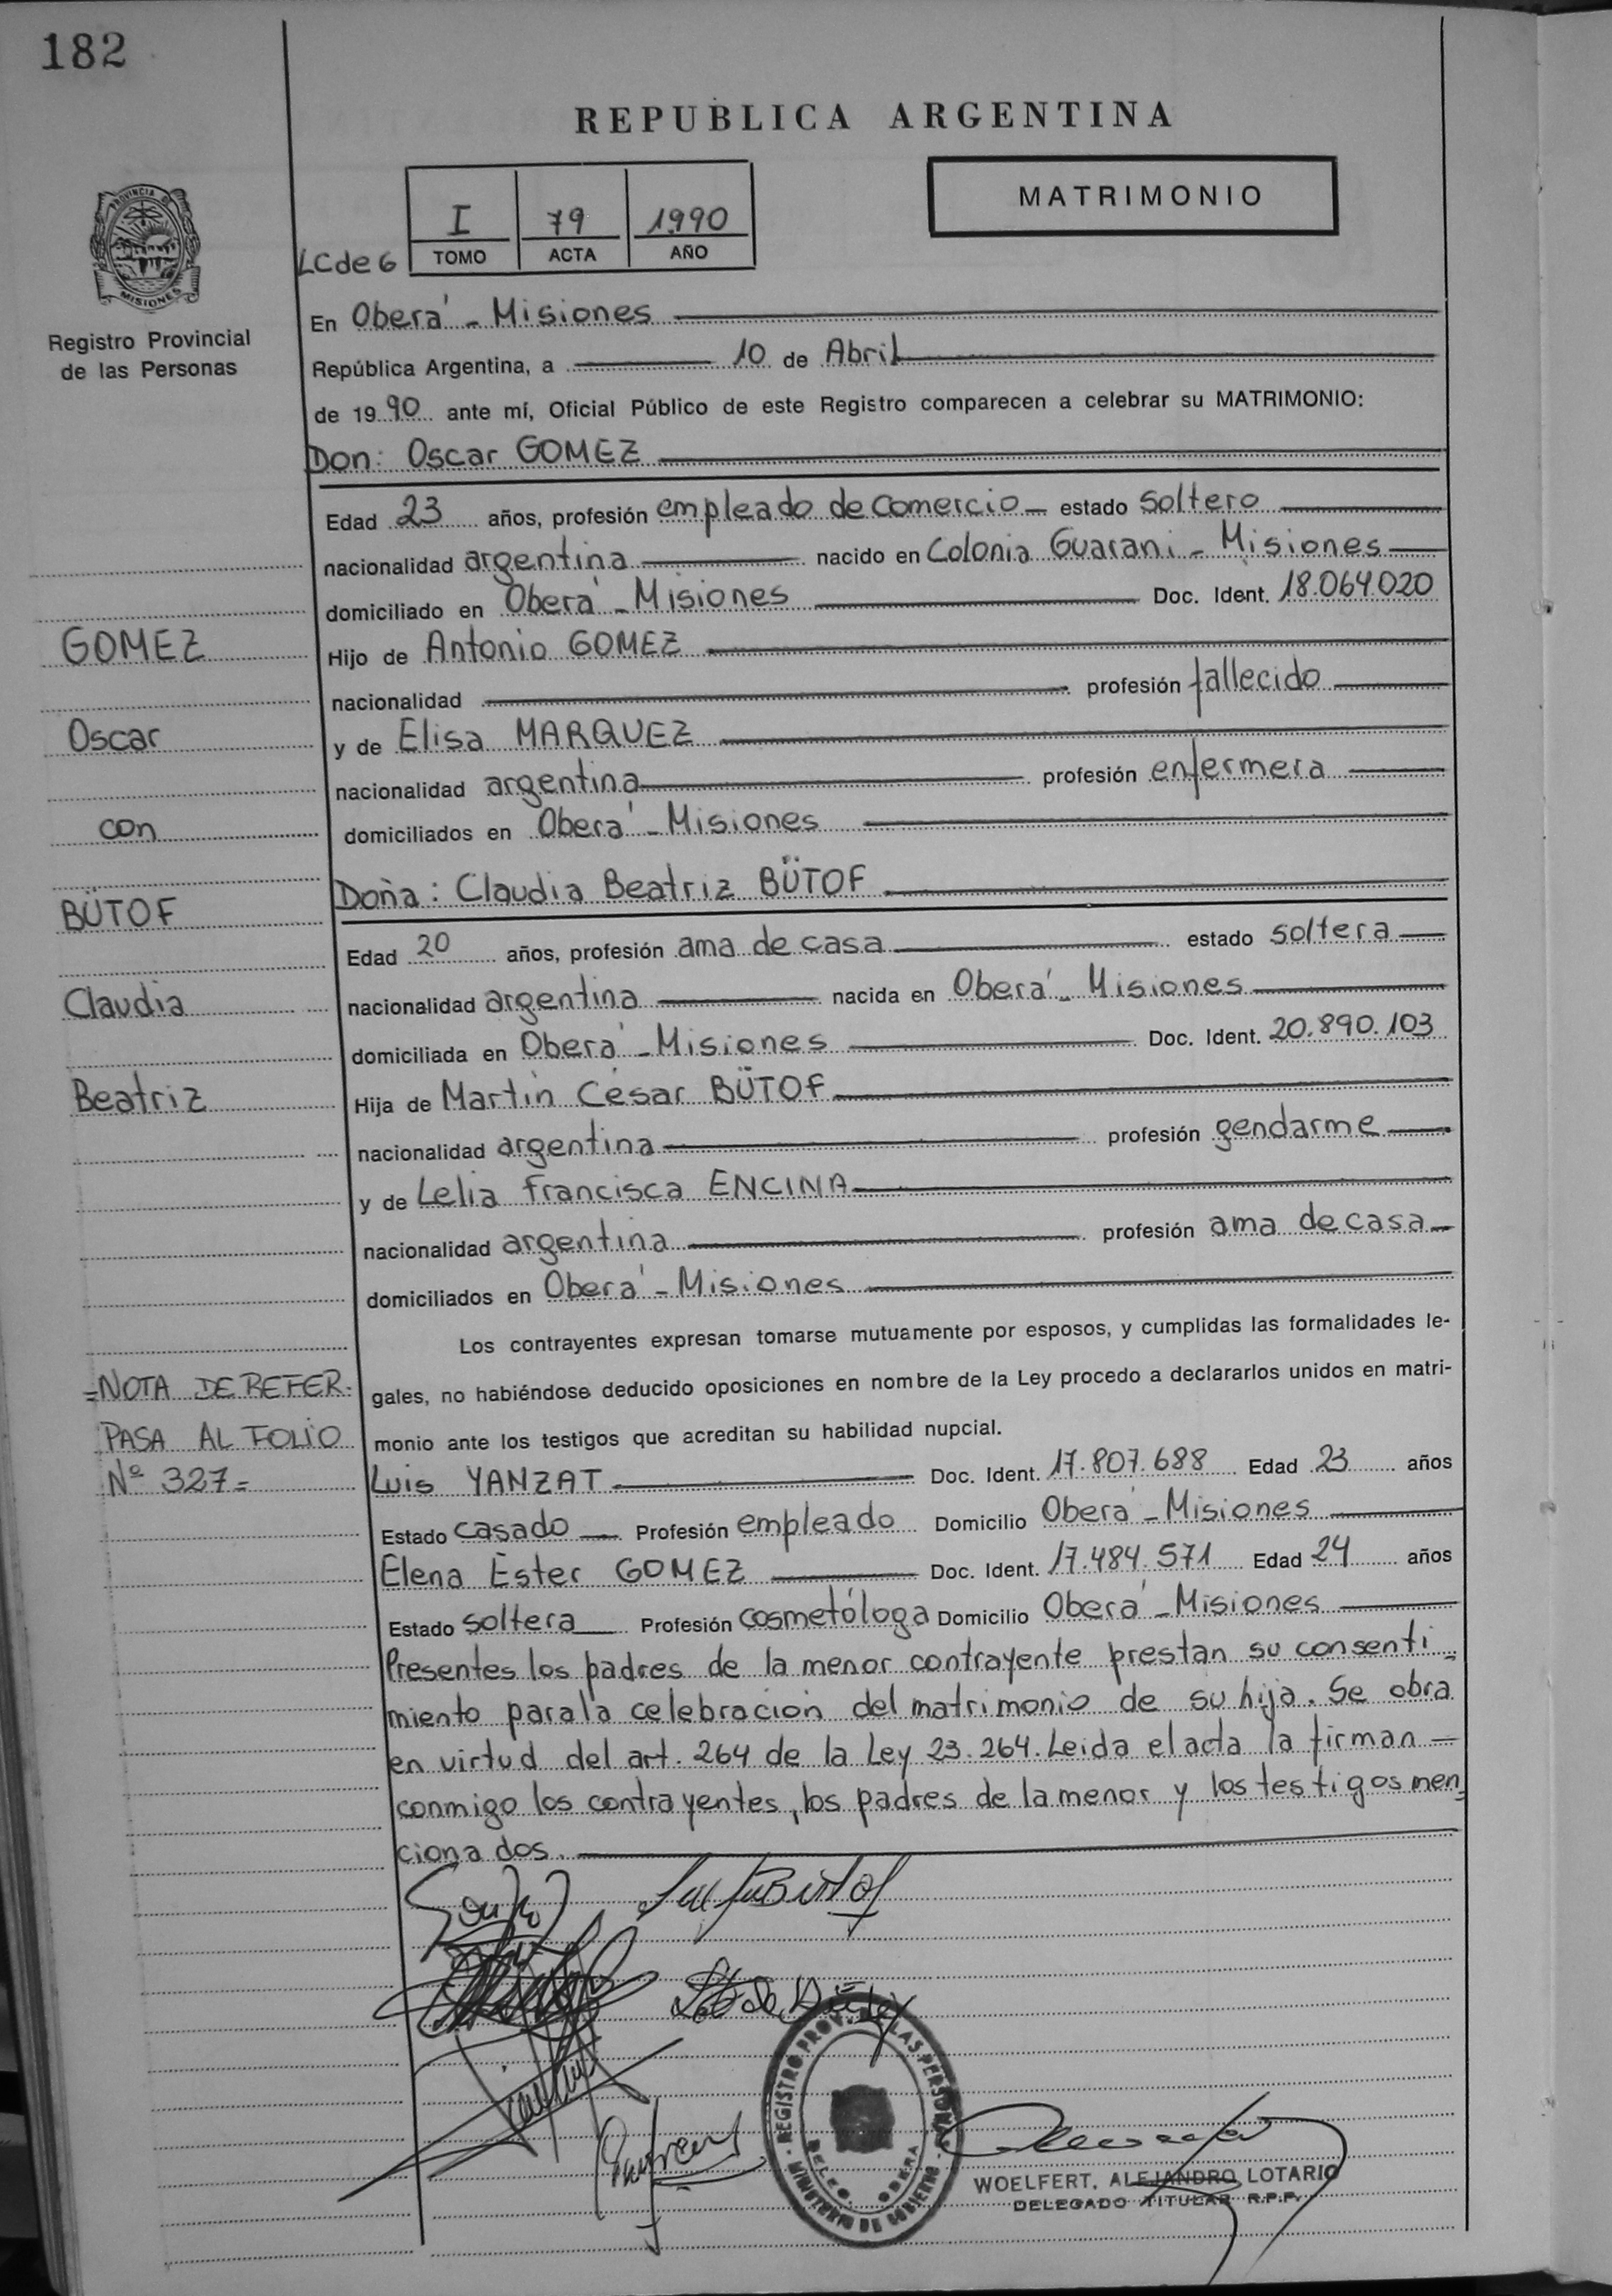 182
REPUBLICA ARGENTINA
MATRIMONIO
I 79 1990
LC de 6 TOMO ACTA AÑO
PROVINCIA
MISIONES
Registro Provincial
de las Personas
En Oberá - Misiones
República Argentina, a 10 de Abril
de 1990 ante mí, Oficial Público de este Registro comparecen a celebrar su MATRIMONIO:
Don: Oscar GOMEZ
Edad 23 años, profesión empleado de comercio estado soltero
nacionalidad argentina nacido en Colonia Guarani - Misiones
domiciliado en Oberá - Misiones Doc. Ident. 18.064.020
Hijo de Antonio GOMEZ
nacionalidad profesión fallecido
y de Elisa MARQUEZ
nacionalidad argentina profesión enfermera
domiciliados en Oberá - Misiones
Doña: Claudia Beatriz BÜTOF
Edad 20 años, profesión ama de casa estado soltera
nacionalidad argentina nacida en Oberá - Misiones
domiciliada en Oberá - Misiones Doc. Ident. 20.890.103
Hija de Martín César BÜTOF
nacionalidad argentina profesión gendarme
y de Lelia Francisca ENCINA
nacionalidad argentina profesión ama de casa
domiciliados en Oberá - Misiones
GOMEZ
Oscar
con
BÜTOF
Claudia
Beatriz
=NOTA DE REFER.
PASA AL FOLIO
Nº 327=
Los contrayentes expresan tomarse mutuamente por esposos, y cumplidas las formalidades le-
gales, no habiéndose deducido oposiciones en nombre de la Ley procedo a declararlos unidos en matri-
monio ante los testigos que acreditan su habilidad nupcial.
Luis YANZAT Doc. Ident. 17.807.688 Edad 23 años
Estado casado Profesión empleado Domicilio Oberá - Misiones
Elena Ester GOMEZ Doc. Ident. 17.484.571 Edad 24 años
Estado soltera Profesión cosmetóloga Domicilio Oberá - Misiones
Presentes los padres de la menor contrayente prestan su consenti
miento para la celebración del matrimonio de su hija. Se obra
en virtud del art. 264 de la Ley 23.264. Leida el acta la firman
conmigo los contrayentes, los padres de la menor y los testigos men
cionados.
REGISTRO PROV. DE LAS PERSONAS
DELEG. OBERA
MINISTERIO DE GOBIERNO
WOELFERT, ALEJANDRO LOTARIO
DELEGADO TITULAR R.P.P.